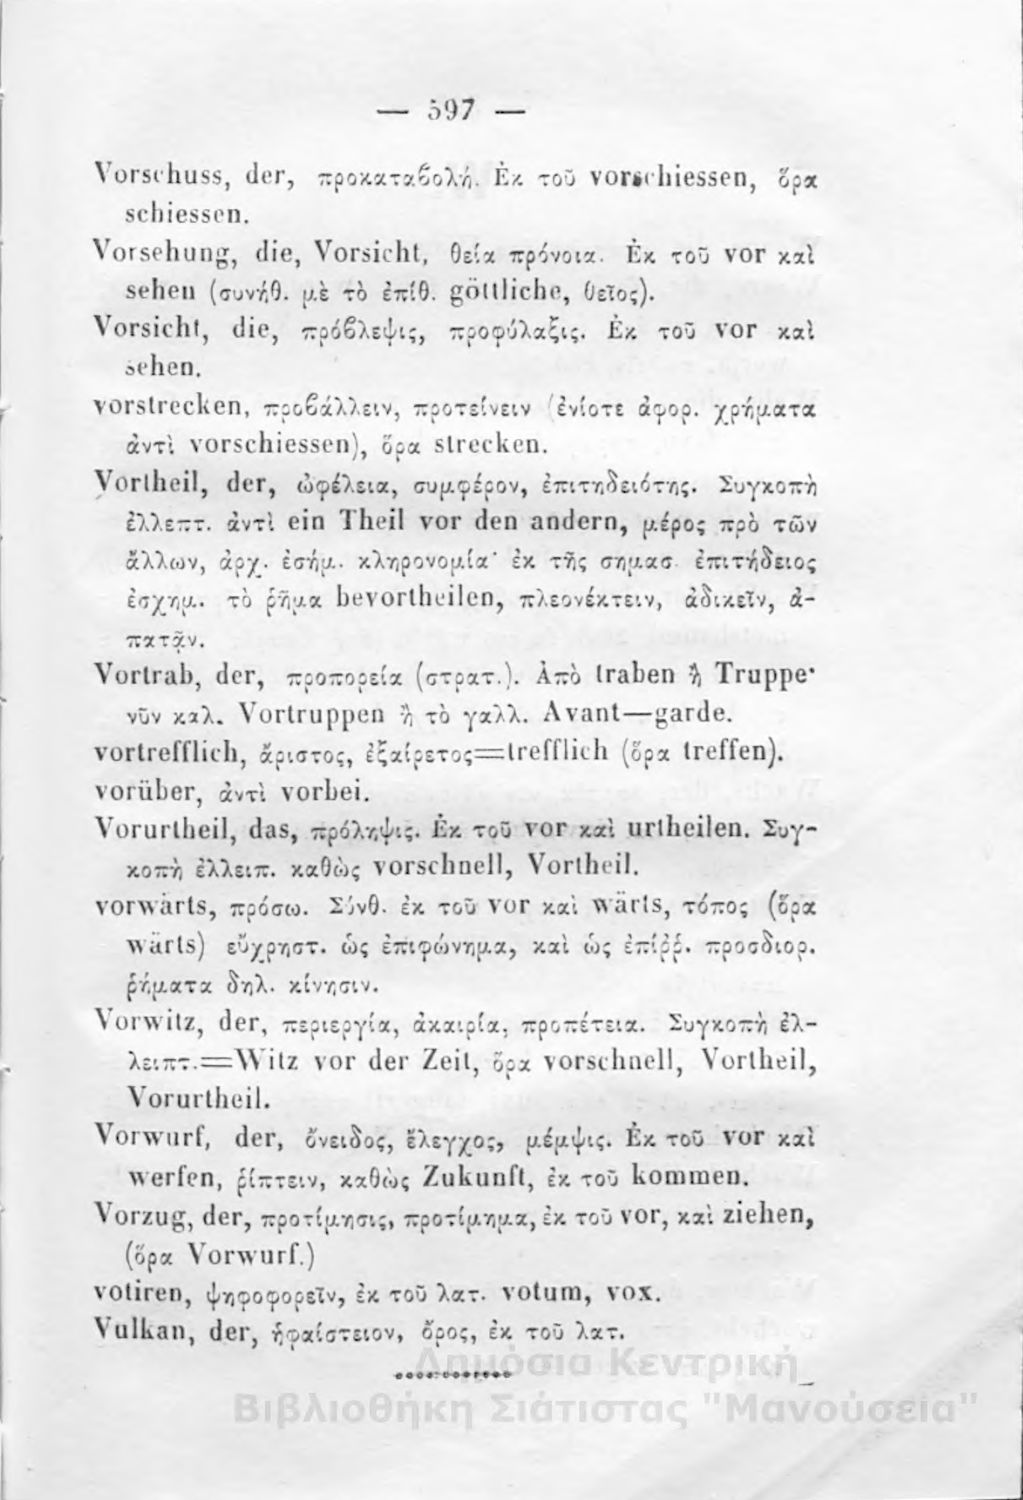 — 597 —
Vorschuss, der, προκαταβολή. Ἐκ τοῦ vorschiessen, ὅρα
schiessen.
Vorsehung, die, Vorsicht, θεία πρόνοια. Ἐκ τοῦ vor καὶ
sehen (συνήθ. μὲ τὸ ἐπίθ. göttliche, θεῖος).
Vorsicht, die, πρόβλεψις, προφύλαξις. Ἐκ τοῦ vor καὶ
sehen.
vorstrecken, προβάλλειν, προτείνειν (ἐνίοτε ἀφορ. χρήματα
ἀντὶ vorschiessen), ὅρα strecken.
Vortheil, der, ὠφέλεια, συμφέρον, ἐπιτηδειότης. Συγκοπὴ
ἐλλεπτ. ἀντὶ ein Theil vor den andern, μέρος πρὸ τῶν
ἄλλων, ἀρχ. ἐσήμ. κληρονομία· ἐκ τῆς σημασ. ἐπιτήδειος
ἐσχημ. τὸ ῥῆμα bevortheilen, πλεονέκτειν, ἀδικεῖν, ἀ-
πατᾷν.
Vortrab, der, προπορεία (στρατ.). Ἀπὸ traben ἢ Truppe·
νῦν καλ. Vortruppen ἢ τὸ γαλλ. Avant—garde.
vortrefflich, ἄριστος, ἐξαίρετος=trefflich (ὅρα treffen).
vorüber, ἀντὶ vorbei.
Vorurtheil, das, πρόληψις. Ἐκ τοῦ vor καὶ urtheilen. Συγ-
κοπὴ ἐλλειπ. καθὼς vorschnell, Vortheil.
vorwärts, πρόσω. Σύνθ. ἐκ τοῦ vor καὶ wärts, τόπος (ὅρα
wärts) εὔχρηστ. ὡς ἐπιφώνημα, καὶ ὡς ἐπίῤῥ. προσδιορ.
ῥήματα δηλ. κίνησιν.
Vorwitz, der, περιεργία, ἀκαιρία, προπέτεια. Συγκοπὴ ἐλ-
λειπτ.=Witz vor der Zeit, ὅρα vorschnell, Vortheil,
Vorurtheil.
Vorwurf, der, ὄνειδος, ἔλεγχος, μέμψις. Ἐκ τοῦ vor καὶ
werfen, ῥίπτειν, καθὼς Zukunft, ἐκ τοῦ kommen.
Vorzug, der, προτίμησις, προτίμημα, ἐκ τοῦ vor, καὶ ziehen,
(ὅρα Vorwurf.)
votiren, ψηφοφορεῖν, ἐκ τοῦ λατ. votum, vox.
Vulkan, der, ἡφαίστειον, ὄρος, ἐκ τοῦ λατ.
Δημόσια Κεντρική
Βιβλιοθήκη Σιάτιστας "Μανούσεια"